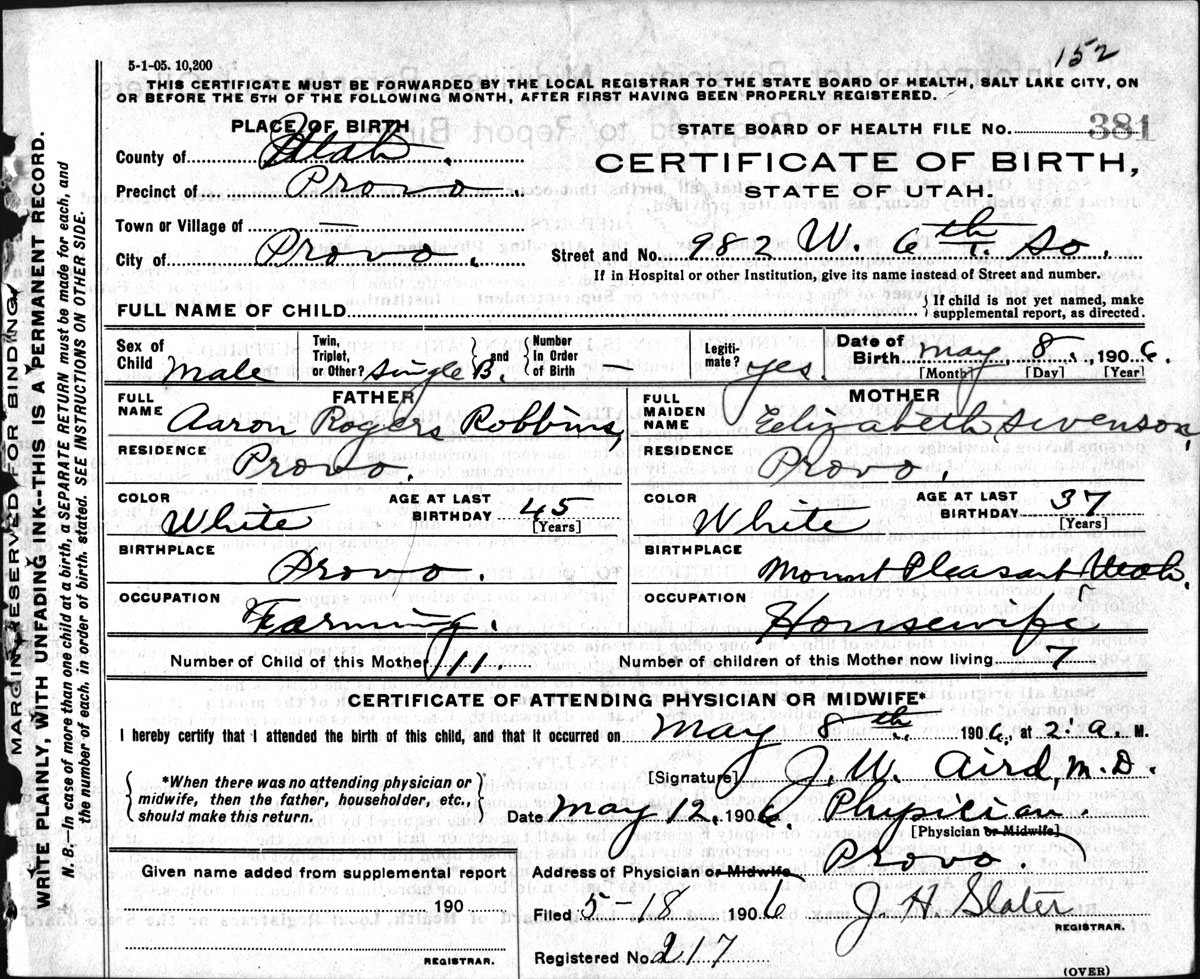 152
5-1-05. 10,200
THIS CERTIFICATE MUST BE FORWARDED BY THE LOCAL REGISTRAR TO THE STATE BOARD OF HEALTH, SALT LAKE CITY, ON
OR BEFORE THE 5TH OF THE FOLLOWING MONTH, AFTER FIRST HAVING BEEN PROPERLY REGISTERED.
PLACE OF BIRTH
STATE BOARD OF HEALTH FILE No. 381
County of Utah.
CERTIFICATE OF BIRTH,
Precinct of Provo
STATE OF UTAH.
Town or Village of —
City of Provo.
Street and No. 982 W. 6th So.
If in Hospital or other Institution, give its name instead of Street and number.
FULL NAME OF CHILD
{If child is not yet named, make
supplemental report, as directed.
Sex of Child Male
Twin, Triplet, or Other? Single B. {and} Number In Order of Birth —
Legiti-mate? yes.
Date of Birth May 8, 1906.
[Month] [Day] [Year]
FATHER
MOTHER
FULL NAME Aaron Rogers Robbins,
FULL MAIDEN NAME Elizabeth Swenson,
RESIDENCE Provo.
RESIDENCE Provo.
COLOR White
AGE AT LAST BIRTHDAY 45 [Years]
COLOR White
AGE AT LAST BIRTHDAY 37 [Years]
BIRTHPLACE Provo.
BIRTHPLACE Mount Pleasant, Utah.
OCCUPATION Farming.
OCCUPATION Housewife
Number of Child of this Mother 11.
Number of children of this Mother now living 7
CERTIFICATE OF ATTENDING PHYSICIAN OR MIDWIFE*
I hereby certify that I attended the birth of this child, and that it occurred on May 8th, 1906, at 2: a. M.
[Signature] J. W. Aird, M.D.
{*When there was no attending physician or
midwife, then the father, householder, etc.,
should make this return.}
Date May 12. 1906. Physician.
[Physician or Midwife]
Given name added from supplemental report
190
REGISTRAR.
Address of Physician or Midwife Provo.
Filed 5-18 1906 J. H. Slater
REGISTRAR.
Registered No. 217
(OVER)
MARGIN RESERVED FOR BINDING
WRITE PLAINLY, WITH UNFADING INK--THIS IS A PERMANENT RECORD.
N. B.—In case of more than one child at a birth, a SEPARATE RETURN must be made for each, and
the number of each, in order of birth, stated. SEE INSTRUCTIONS ON OTHER SIDE.